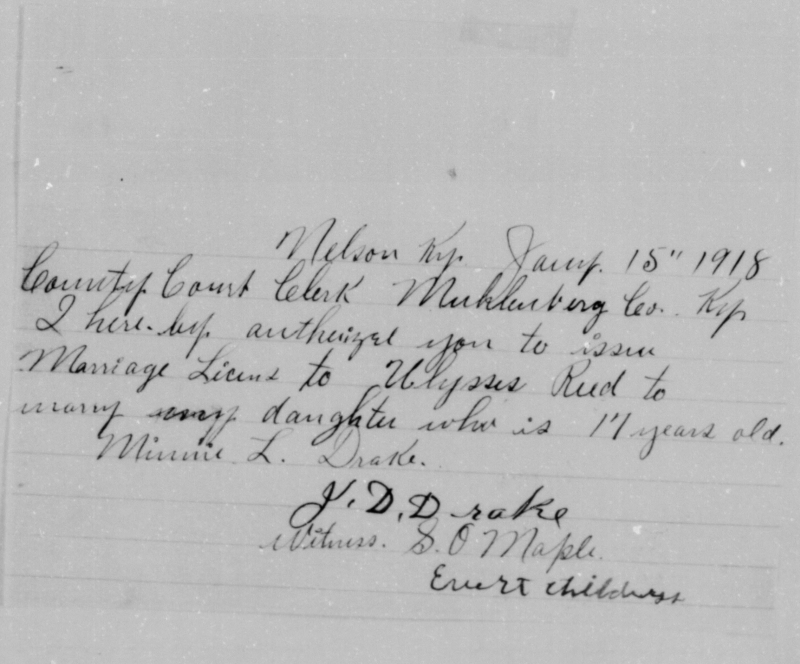 Nelson Ky. Jany. 15" 1918
County Court Clerk Muhlenberg Co. Ky
I here-by authorize you to issue
Marriage Licens to Ulysses Reed to
marry my daughter who is 17 years old.
Minnie L. Drake.
J. D. Drake
Witness. S. O Maple.
Evert Childress